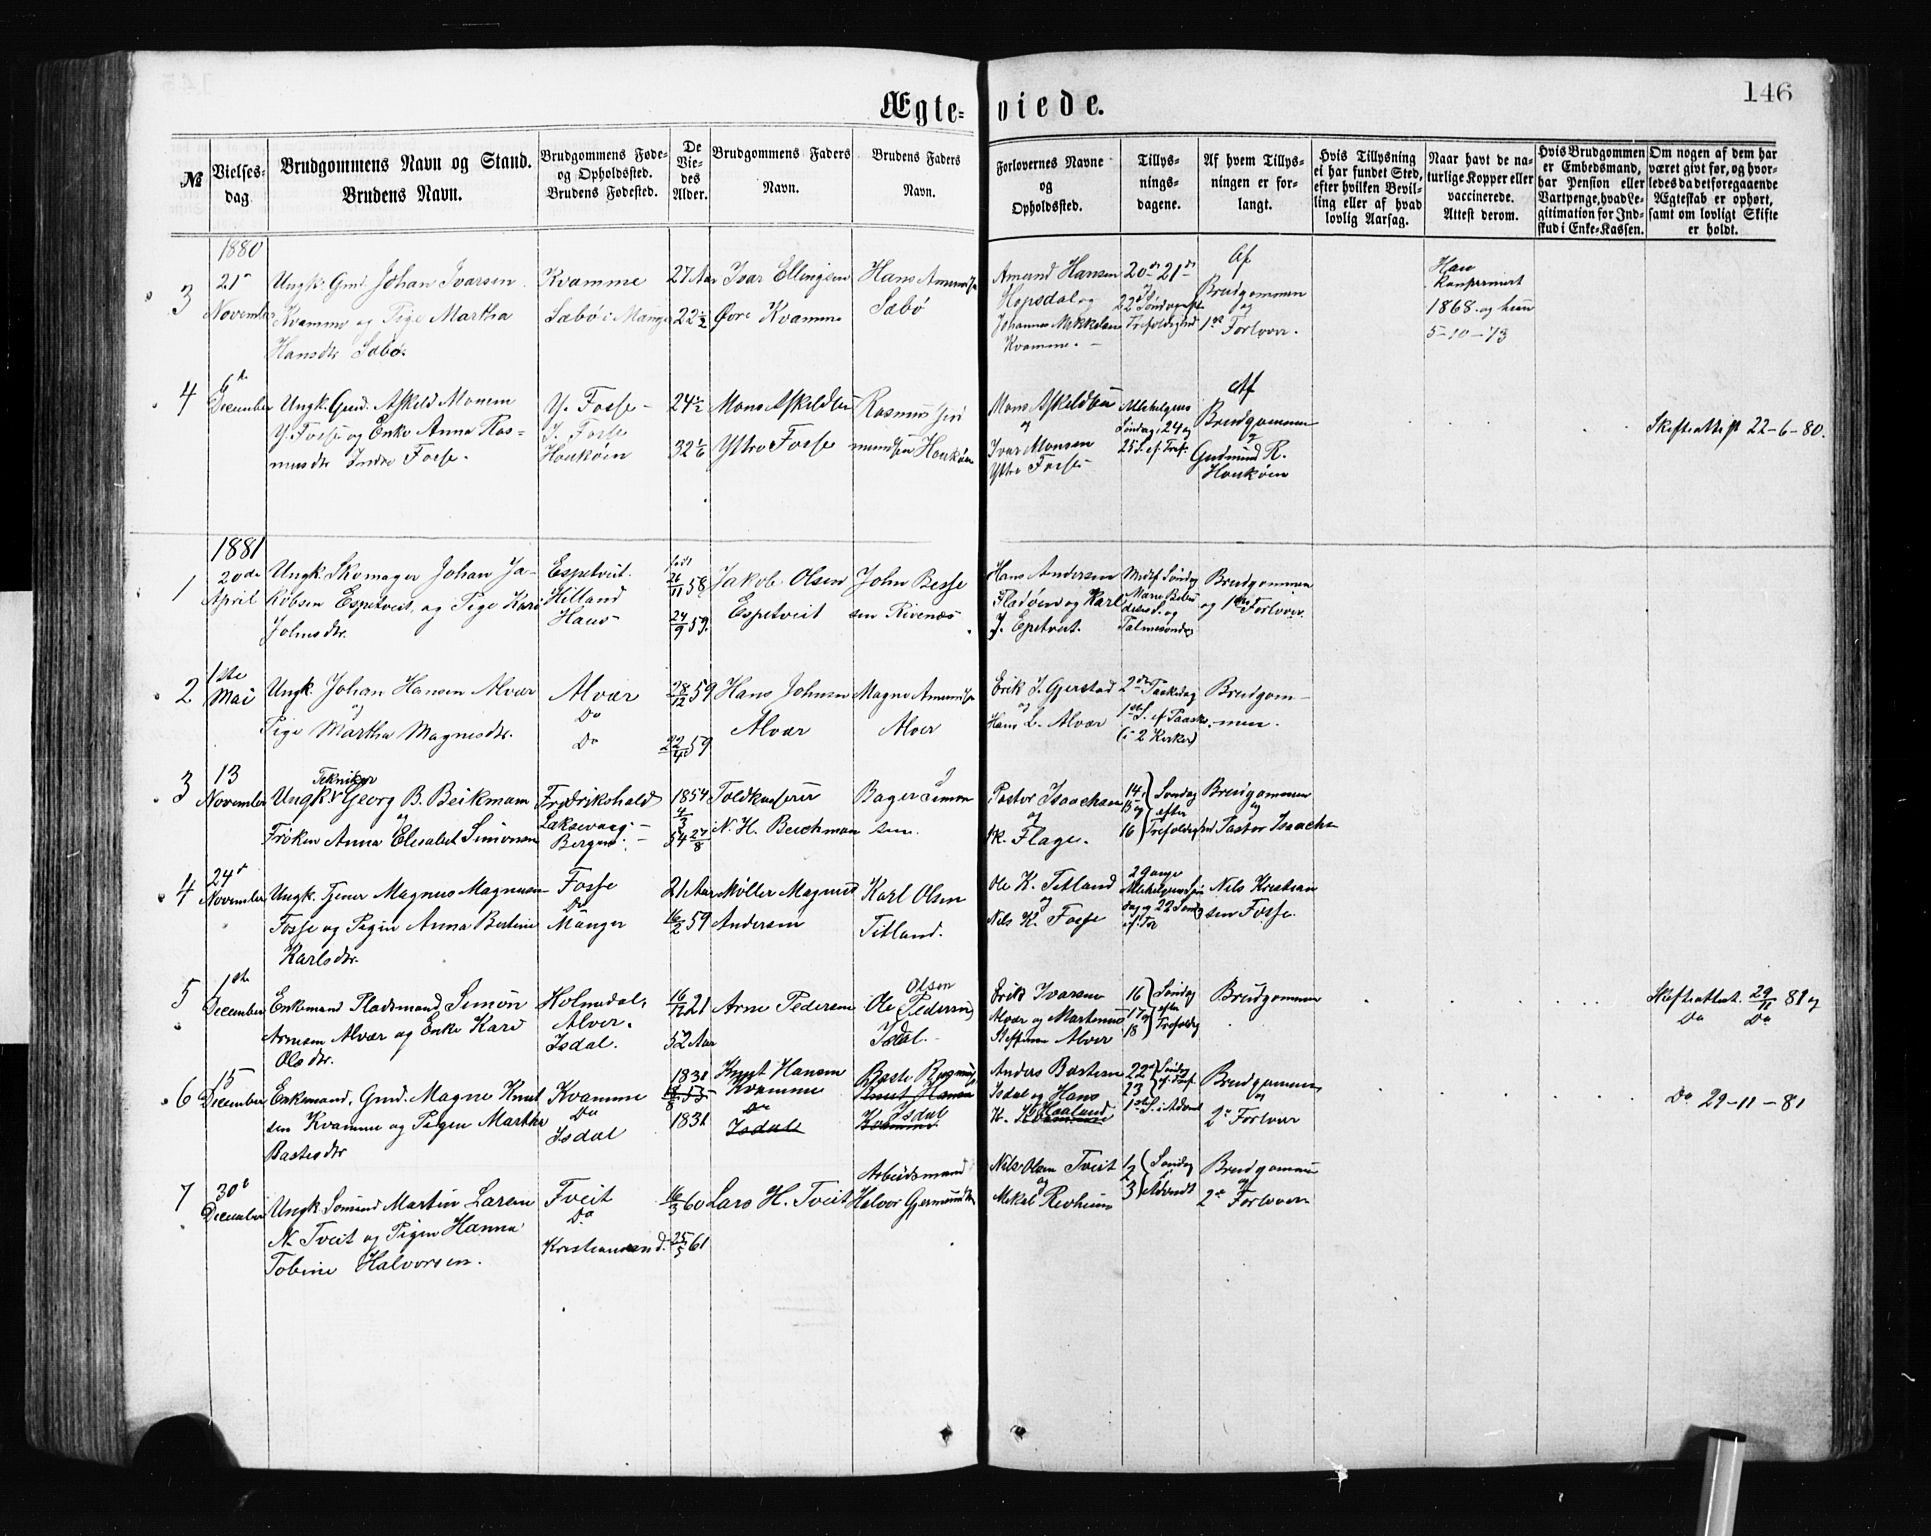 146
Ægte-viede.
№
Vielses-dag.
Brudgommens Navn og Stand.
Brudens Navn.
Brudgommens Føde-
og Opholdssted.
Brudens Fødested.
De
Vie-
des
Alder.
Brudgommens Faders
Navn.
Brudens Faders
Navn.
Forlovernes Navne
og
Opholdssted.
Tillys-
nings-
dagene.
Af hvem Tillys-
ningen er for-
langt.
Hvis Tillysning
ei har fundet Sted,
efter hvilken Bevil-
ling eller af hvad
lovlig Aarsag.
Naar havt de na-
turlige Kopper eller
vaccinerede.
Attest derom.
Hvis Brudgommen
er Embedsmand,
har Pension eller
Vartpenge, hvad Le-
gitimation for Ind-
skud i Enke-Kassen.
Om nogen af dem har
været givt før, og hvor-
ledes da det foregaaende
Ægteskab er ophørt,
samt om lovligt Skifte
er holdt.
1880
3
21
November
Ungk. Gmd. Johan Ivarsen
Kvamme og Pige Martha
Hansdtr Sæbø.
Kvamme
Sæbø i Manger
27 Aar
22 1/2
Ivar Ellingsen
Øvre Kvamme
Hans
Sæbø
Amund Hansen
Hopsdal og
Johannes Mikkelsen
Kvamme.
20de 21de
22
Trefoldighed
Af
Brudgommen
og
1ste Forlover.
Han
Konfirmert
1868 og hun
5-10-73
4
6te
December
Ungk. Gmd. Askild Monsen
Y. Fosse og Enke Anna Ras-
musdtr Indre Fosse.
Y. Fosse
I. Fosse
Houkøen
24 1/2
32 1/6
Mons Askildsen
Ytre Fosse
Rasmus
Houkøen
Mons Askildsen
og
Ivar Monsen
Ytre Fosse
Allehelgens
Søndag, 24 og
25 S. ef. Tref.
Af
Brudgommen
og
Gudmund R.
Houkøen
Skifteattest 22-6-80.
1881
1
20de
April
Ungk. Skomager Johan Ja-
kobsen Espetveit og Pige Kari
Johnsdtr.
Espetveit
Hilland
Haus
født
26/11 58
24/9 59.
Jakob Olsen
Espetveit
John Besse
sen Rivenæs
Hans Andersen
Fladøen og Karl
J. Epetveit.
Midf. Søndag
Marie Bebu
delses D. og
Palmesøndag
Brudgommen
og 1ste Forlover.
2
1ste
Mai
Ungk. Johan Hansen Alvær
og
Pige Martha Magnesdtr.
Alvær
Do
Do
28/12 59
22/4 59
Hans Johnsen
Alvær
Magne
Alver
Erik J. Gjerstad
og
Hans L. Alvær
2den Paaskedag
1ste S. ef Paaske
(i 2 Kirker)
Brudgom-
men.
3
13
November
Tekniker
Ungk. Georg B. Beikman
og
Frøken Anna Elisabet Simonsen
Fredrikshald
Laksevaag
Bergen
1854
4/3
54 27/8
Toldkasserer
N. H. Beichman
Bager Simon
sen.
Pastor Isaachsen
og
Flage.
14
15 og
16
Søndag
efter
Trefoldighed
Brudgommen
og
Pastor Isaachs
4
24
November
Ungk. Tjener Magnus Magnusen
Fosse og Pigen Anna Bertine
Karlsdtr.
Fosse
Do
Manger
21 Aar
16/2 59
Møller Magnus
Andersen
Karl Olsen
Titland.
Ole K. Titland
og
Nils K. Fosse
2 Gange
Allehelgens Søn
dag og 22 Sønd
ef. Tr
Nils Kristian
sen Fosse.
5
1ste
December
Enkemand Pladsmand Simon
Arnesen Alvær og Enke Kari
Olsdtr.
Holmedal,
Alver.
Isdal.
16/12 21
52 Aar
Arne Pedersen
Olsen
Ole Pedersen
Isdal.
Erik Ivarsen
Alvær og Martinus
Steffensen Alver
16
17 og
18
Søndag
efter
Trefoldig
Brudgommen
Skifteattest 29/11 81 og
Do Do
6
15
December
Enkemand, Gmd. Magne Knut
sen Kvamme og Pigen Martha
Bastesdtr
Kvamme
Do
Isdal
1831
1831
Knut Hansen
Kvamme
Do
Isdal
Baste Rasmus
Knut Hansen
Isdal
Kvamme
Anders Bastesen
Isdal og Hans
K. Haaland
22 Søndag
23 ef. Tref.
1ste S. i Advent
Brudgommen
og
2. Forlover
Do 29-11-81
7
30te
December
Ungk. Sømand Martin Larsen
N. Tveit og Pigen Hanna
Tobine Halvorsen.
Tveit
Do
Kristiansand.
16/3 60
25/5 61
Lars H. Tveit
Arbeidsmand
Halvor Gjermunds
Nils Olsen Tveit
og
Mikal Revheim
1
2
3
Søndag
i
Advent
Brudgommen
og
2. Forlover